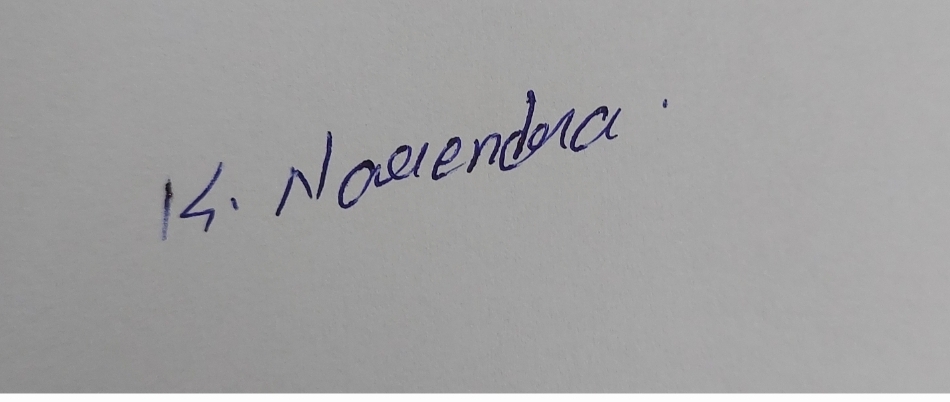 K. Narendra.